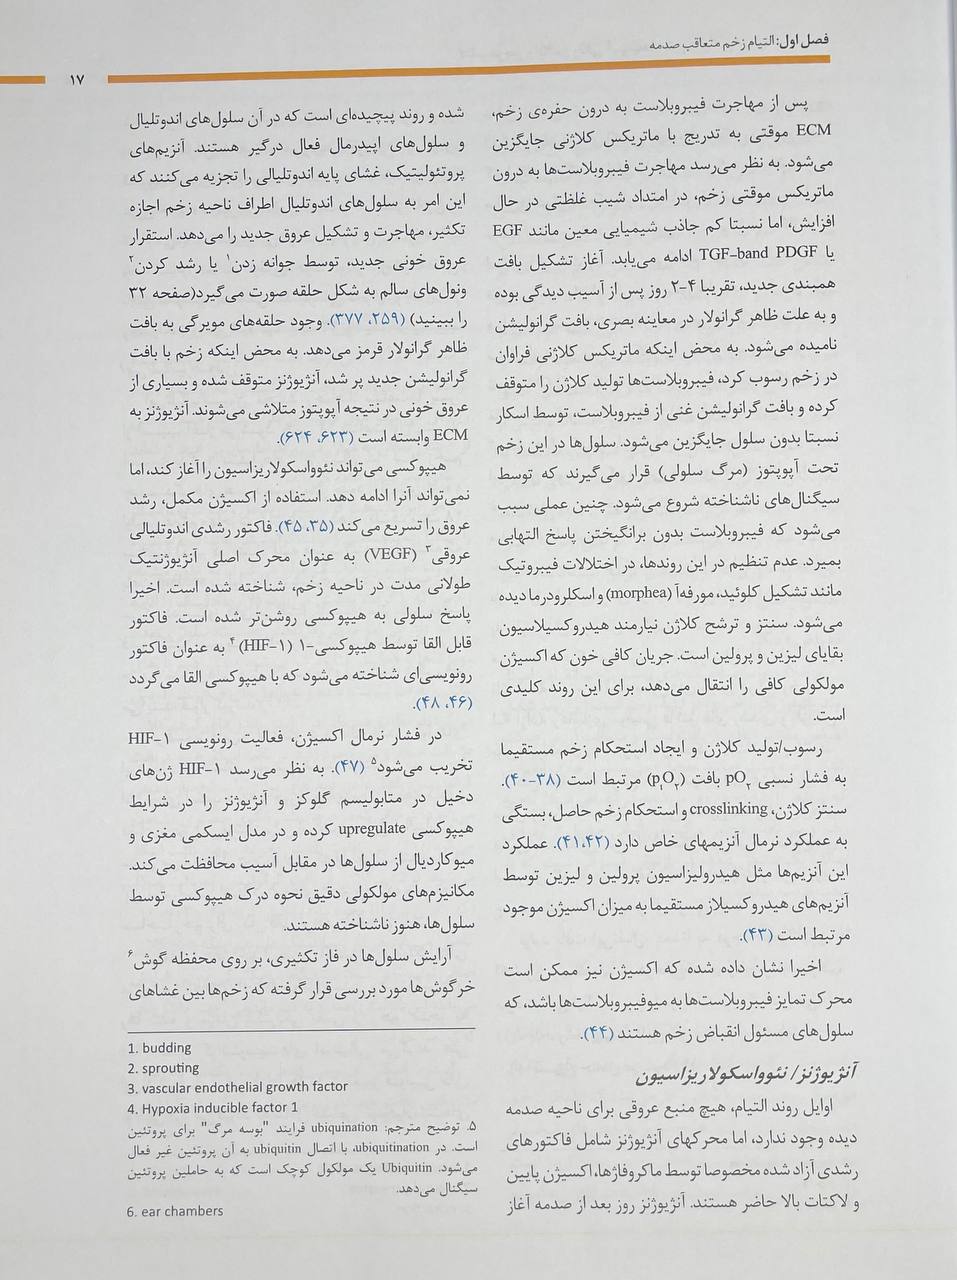 فصل اول: التیام زخم متعاقب صدمه
۱۷
پس از مهاجرت فیبروبلاست به درون حفره‌ی زخم،
ECM موقتی به تدریج با ماتریکس کلاژنی جایگزین
می‌شود. به نظر می‌رسد مهاجرت فیبروبلاست‌ها به درون
ماتریکس موقتی زخم، در امتداد شیب غلظتی در حال
افزایش، اما نسبتا کم جاذب شیمیایی معین مانند EGF
یا TGF-band PDGF ادامه می‌یابد. آغاز تشکیل بافت
همبندی جدید، تقریبا ۴-۲ روز پس از آسیب دیدگی بوده
و به علت ظاهر گرانولار در معاینه بصری، بافت گرانولیشن
نامیده می‌شود. به محض اینکه ماتریکس کلاژنی فراوان
در زخم رسوب کرد، فیبروبلاست‌ها تولید کلاژن را متوقف
کرده و بافت گرانولیشن غنی از فیبروبلاست، توسط اسکار
نسبتا بدون سلول جایگزین می‌شود. سلول‌ها در این زخم
تحت آپوپتوز (مرگ سلولی) قرار می‌گیرند که توسط
سیگنال‌های ناشناخته شروع می‌شود. چنین عملی سبب
می‌شود که فیبروبلاست بدون برانگیختن پاسخ التهابی
بمیرد. عدم تنظیم در این روندها، در اختلالات فیبروتیک
مانند تشکیل کلوئید، مورفه‌آ (morphea) و اسکلرودرما دیده
می‌شود. سنتز و ترشح کلاژن نیازمند هیدروکسیلاسیون
بقایای لیزین و پرولین است. جریان کافی خون که اکسیژن
مولکولی کافی را انتقال می‌دهد، برای این روند کلیدی
است.
رسوب/تولید کلاژن و ایجاد استحکام زخم مستقیما
به فشار نسبی pO۲ بافت (p,O۲) مرتبط است (۳۸-۴۰).
سنتز کلاژن، crosslinking و استحکام زخم حاصل، بستگی
به عملکرد نرمال آنزیمهای خاص دارد (۴۱،۴۲). عملکرد
این آنزیم‌ها مثل هیدرولیزاسیون پرولین و لیزین توسط
آنزیم‌های هیدروکسیلاز مستقیما به میزان اکسیژن موجود
مرتبط است (۴۳).
اخیرا نشان داده شده که اکسیژن نیز ممکن است
محرک تمایز فیبروبلاست‌ها به میوفیبروبلاست‌ها باشد، که
سلول‌های مسئول انقباض زخم هستند (۴۴).
آنژیوژنز/ نئوواسکولاریزاسیون
اوایل روند التیام، هیچ منبع عروقی برای ناحیه صدمه
دیده وجود ندارد، اما محرکهای آنژیوژنز شامل فاکتورهای
رشدی آزاد شده مخصوصا توسط ماکروفاژها، اکسیژن پایین
و لاکتات بالا حاضر هستند. آنژیوژنز روز بعد از صدمه آغاز
شده و روند پیچیده‌ای است که در آن سلول‌های اندوتلیال
و سلول‌های اپیدرمال فعال درگیر هستند. آنزیم‌های
پروتئولیتیک، غشای پایه اندوتلیالی را تجزیه می‌کنند که
این امر به سلول‌های اندوتلیال اطراف ناحیه زخم اجازه
تکثیر، مهاجرت و تشکیل عروق جدید را می‌دهد. استقرار
عروق خونی جدید، توسط جوانه زدن۱ یا رشد کردن۲
ونول‌های سالم به شکل حلقه صورت می‌گیرد(صفحه ۳۲
را ببینید) (۲۵۹، ۳۷۷). وجود حلقه‌های مویرگی به بافت
ظاهر گرانولار قرمز می‌دهد. به محض اینکه زخم با بافت
گرانولیشن جدید پر شد، آنژیوژنز متوقف شده و بسیاری از
عروق خونی در نتیجه آپوپتوز متلاشی می‌شوند. آنژیوژنز به
ECM وابسته است (۶۲۳، ۶۲۴).
هیپوکسی می‌تواند نئوواسکولاریزاسیون را آغاز کند، اما
نمی‌تواند آنرا ادامه دهد. استفاده از اکسیژن مکمل، رشد
عروق را تسریع می‌کند (۳۵، ۴۵). فاکتور رشدی اندوتلیالی
عروقی۳ (VEGF) به عنوان محرک اصلی آنژیوژنتیک
طولانی مدت در ناحیه زخم، شناخته شده است. اخیرا
پاسخ سلولی به هیپوکسی روشن‌تر شده است. فاکتور
قابل القا توسط هیپوکسی-۱ (HIF-۱)۴ به عنوان فاکتور
رونویسی‌ای شناخته می‌شود که با هیپوکسی القا می‌گردد
(۴۶، ۴۸).
در فشار نرمال اکسیژن، فعالیت رونویسی HIF-۱
تخریب می‌شود۵ (۴۷). به نظر می‌رسد HIF-۱ ژن‌های
دخیل در متابولیسم گلوکز و آنژیوژنز را در شرایط
هیپوکسی upregulate کرده و در مدل ایسکمی مغزی و
میوکاردیال از سلول‌ها در مقابل آسیب محافظت می‌کند.
مکانیزم‌های مولکولی دقیق نحوه درک هیپوکسی توسط
سلول‌ها، هنوز ناشناخته هستند.
آرایش سلول‌ها در فاز تکثیری، بر روی محفظه گوش۶
خرگوش‌ها مورد بررسی قرار گرفته که زخم‌ها بین غشاهای
1. budding
2. sprouting
3. vascular endothelial growth factor
4. Hypoxia inducible factor 1
۵. توضیح مترجم: ubiquination فرایند "بوسه مرگ" برای پروتئین
است. در ubiquitination، با اتصال ubiquitin به آن پروتئین غیر فعال
می‌شود. Ubiquitin یک مولکول کوچک است که به حاملین پروتئین
سیگنال می‌دهد.
6. ear chambers